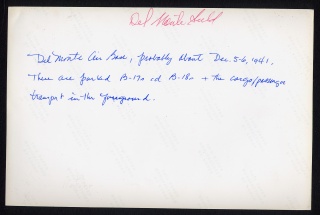 Del Monte Field
Del Monte Air Base, probably about Dec. 5-6, 1941.
There are parked B-17s and B-18s + the cargo/passenger
transport in the foreground.